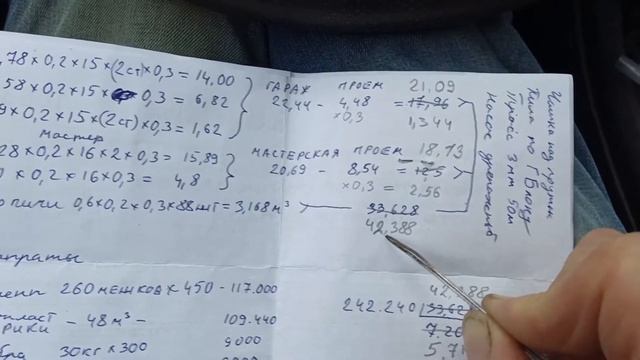 ,78×0,2×15×(2ст)×0,3 = 14,00
58×0,2×15× 0,3 = 6,82
9×0,2×15×(2ст)×0,3 = 1,62
мастер
28×0,2×16×2×0,3 = 15,89
×0,2×16×0,3 = 4,8
0,6×0,2×0,3×88шт = 3,168 м³
ГАРАЖ ПРОЕМ 21.09
22,44 - 4,48 = 17,96
×0,3 1,344
МАСТЕРСКАЯ ПРОЕМ 18,13
20,69 - 8,54 = 12,5
×0,3 = 2,56
33,628
42.388
Пила по ГБлоку
Тросс 3 мм 50м
Насос
260 мешков × 450 - 117.000
- 48 м³ - 109.440
30кг × 300 9000
42,388
242.240 33,62
7.20
5,7